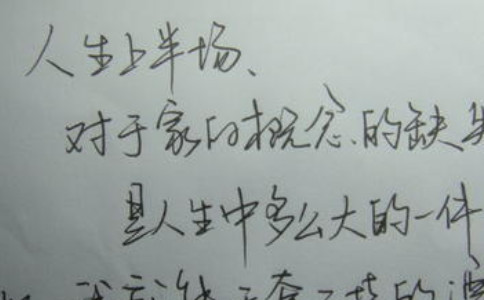 人生上半场、
对于家的概念、的缺失
是人生中多么大的一件